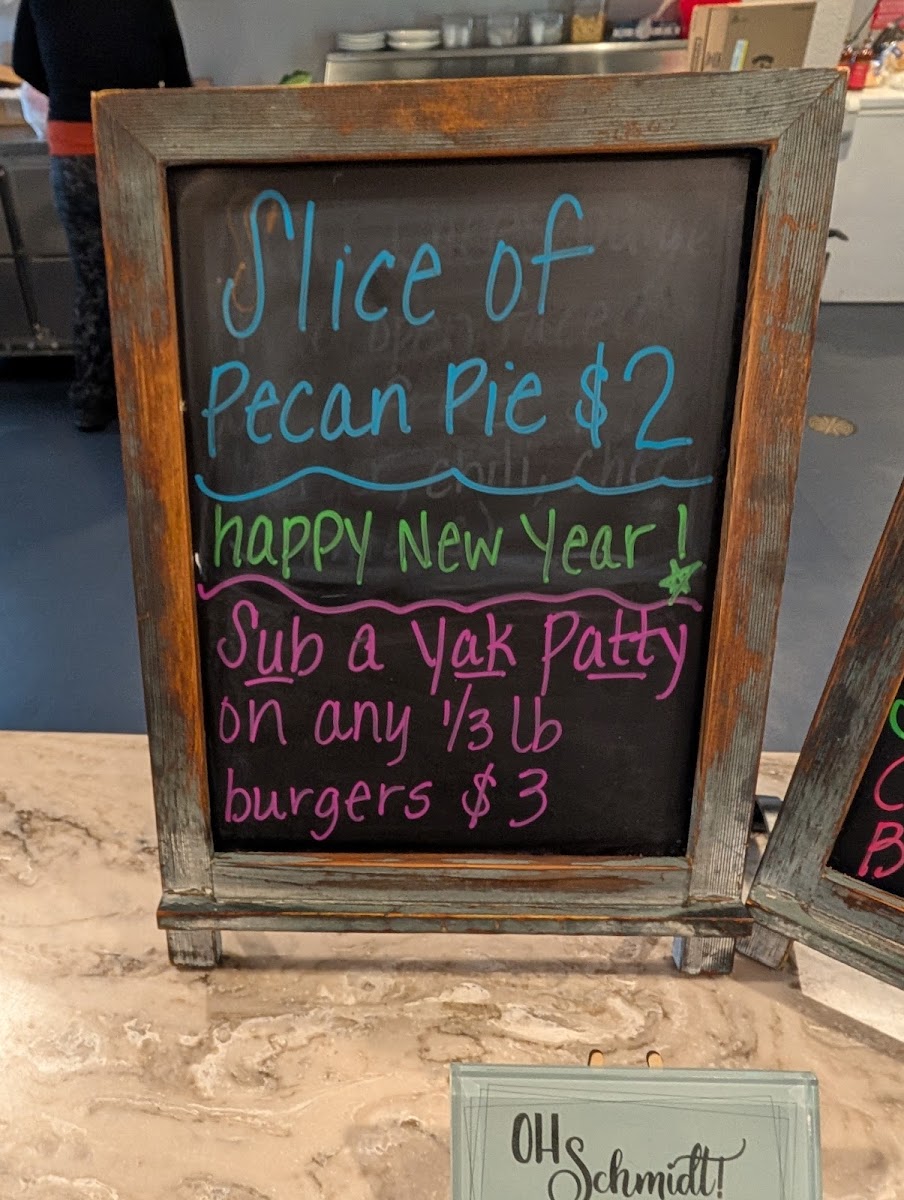 Slice of
Pecan Pie $2
happy New Year!
Sub a Yak Patty
on any 1/3 lb
burgers $3
OH Schmidt!